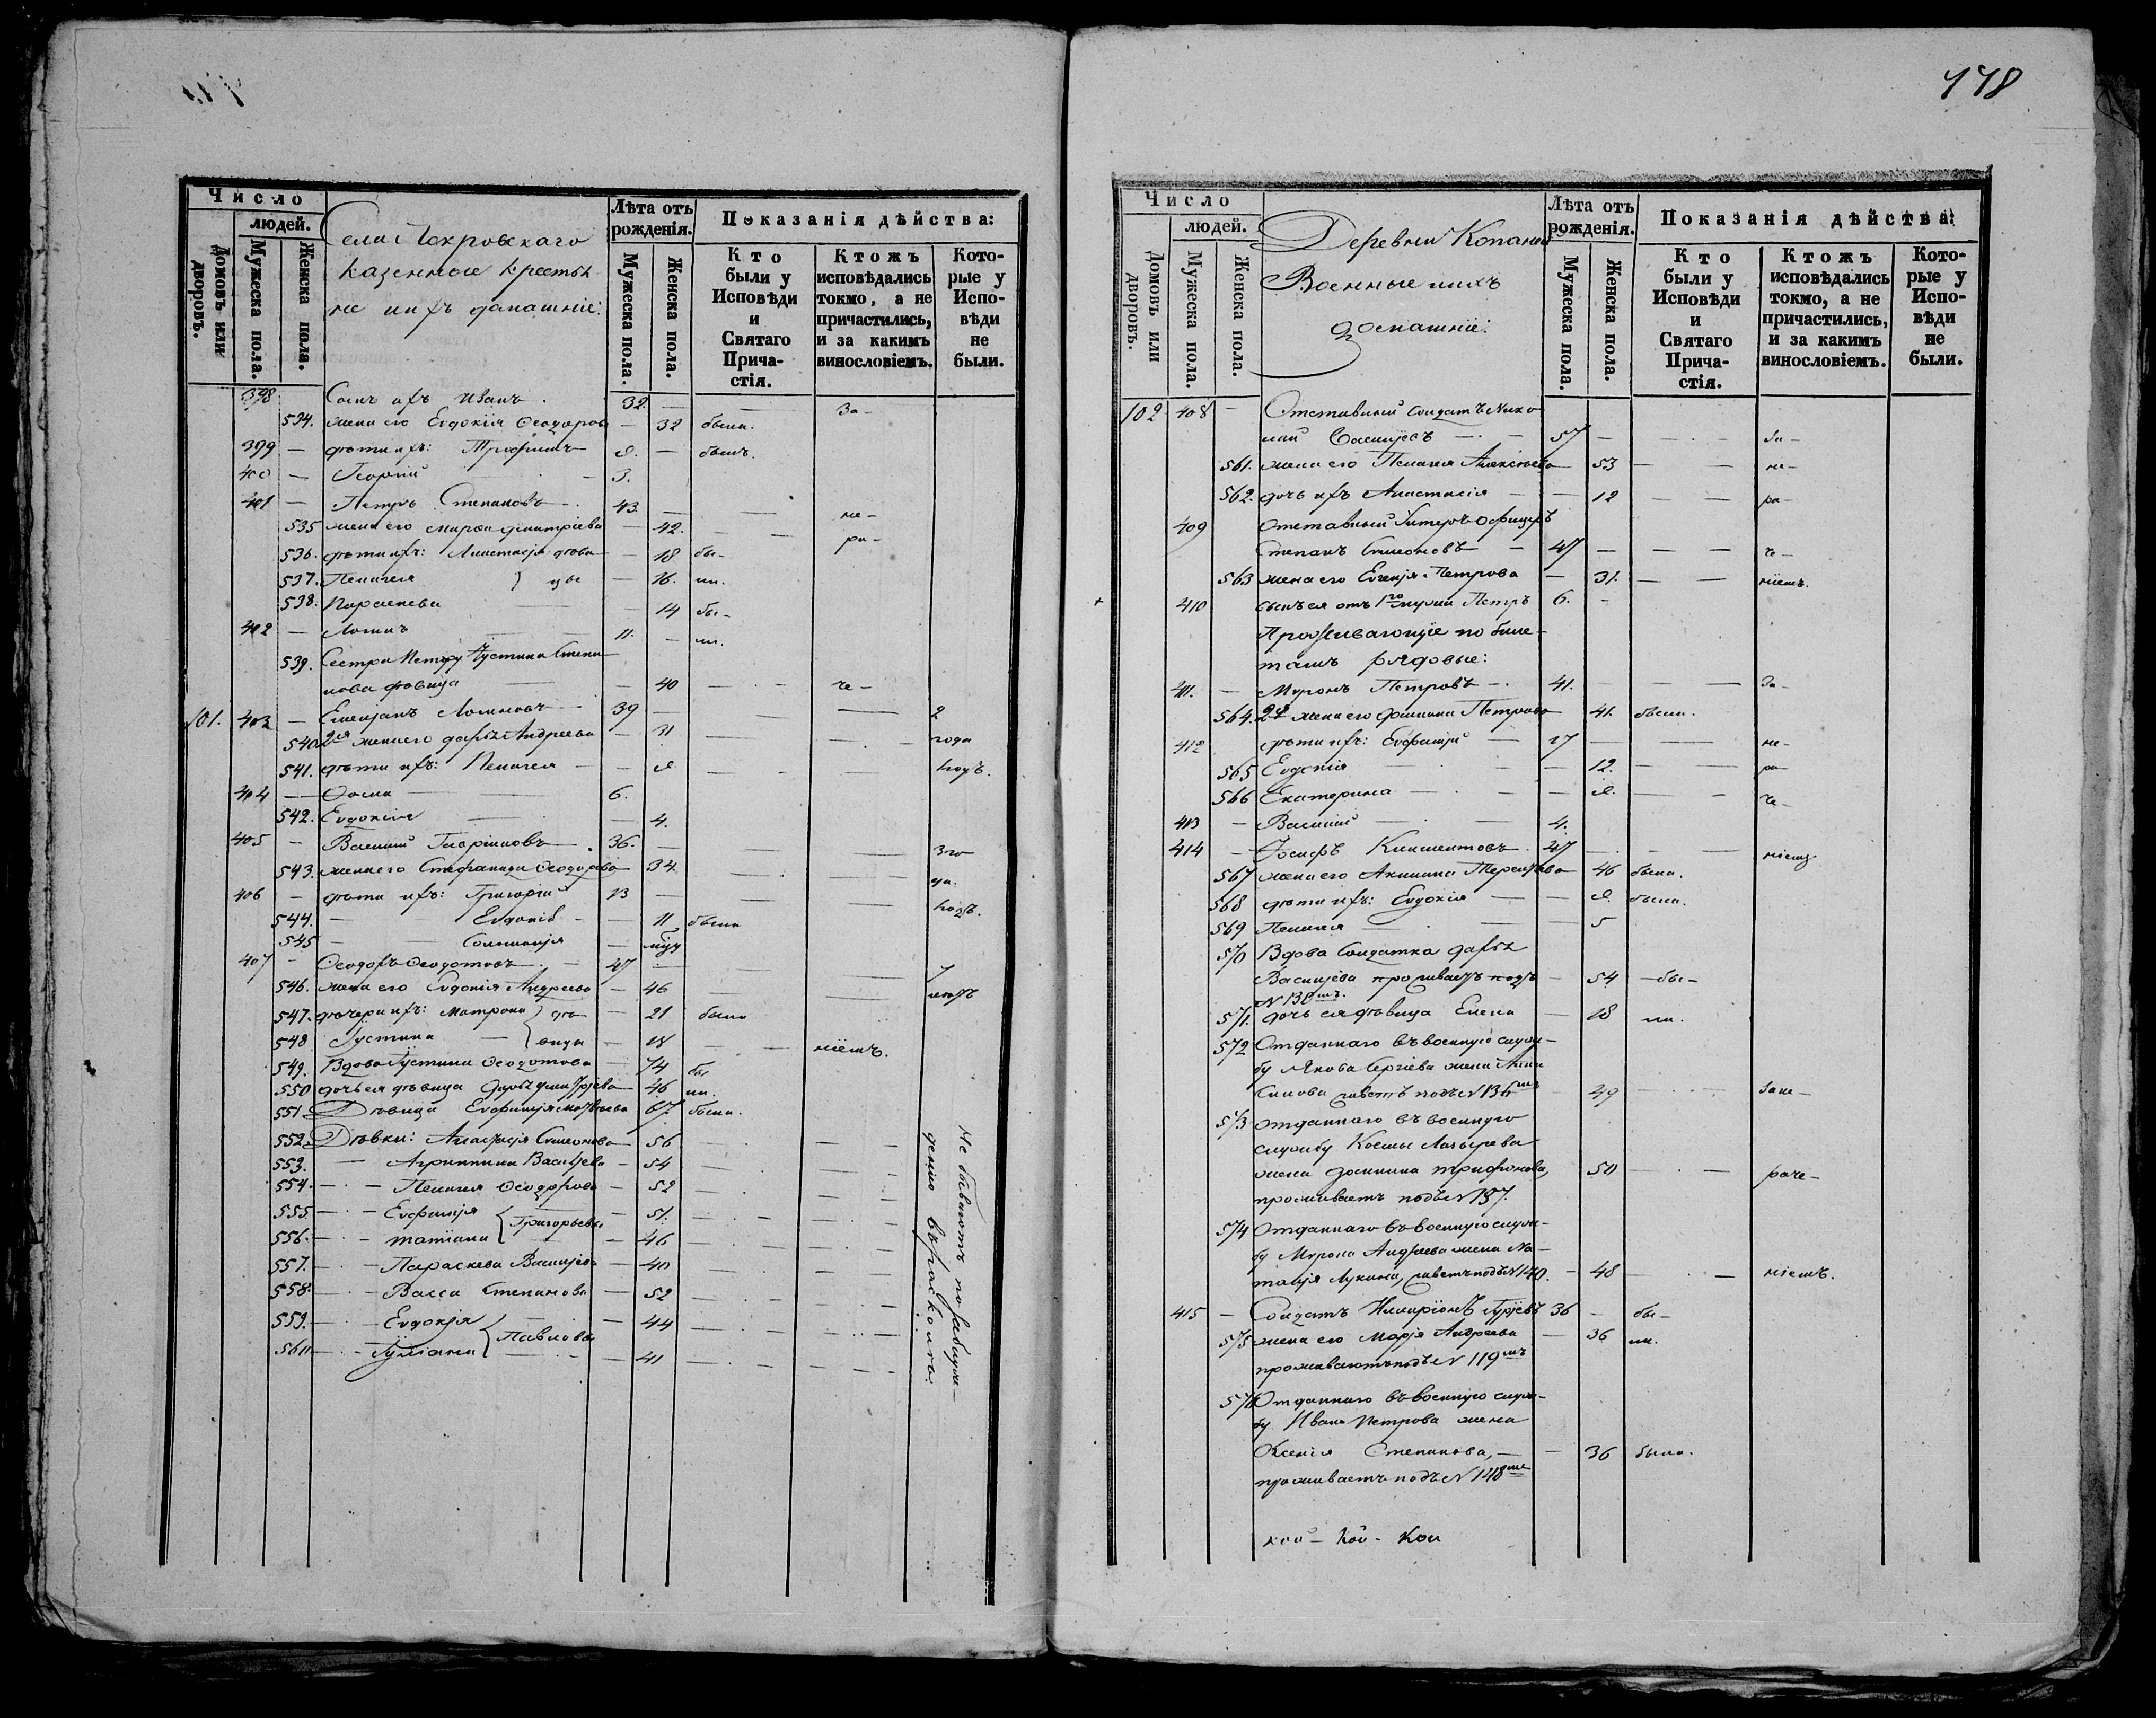 Число
людей.
Домовъ или дворовъ.
Мужеска пола.
Женска пола.
Села Покровскаго
казенные крестья
не ихъ домашніе:
Лѣта отъ рожденія.
Мужеска пола.
Женска пола.
Показанія дѣйства:
Кто были у Исповѣди и Святаго Прича-стія.
Ктожъ исповѣдались токмо, а не причастились, и за какимъ винословіемъ.
Кото-рые у Испо-вѣди не были.
398 Сынъ ихъ Иванъ 32 — — За-
534. жена его Евдокія Ѳеодорова — 32 была.
399 — дѣти ихъ: Трофимъ 8. — былъ.
400 — Георгій 3.
401 — Петръ Степановъ 43. — — не-
535 жена его Марѳа Димитріева — 42. — ра-
536. дѣти ихъ: Анастасія дѣви — 18 бы-
537. Пелагея } цы — 16. ли.
538. Параскева — 14 бы-
402 — Логинъ 11. — ли.
539. Сестра Петру Іустина Степа
нова дѣвица — 40 — че-
101. 403 — Емеліанъ Логиновъ 39 — — — 2
540. 2я жена его Дарья Андреева — 31 — — года
541. дѣти ихъ: Пелагея — 8 — — ходъ.
404 — Ѳома 6.
542. Евдокія — 4.
405 — Василій Гавріиловъ 36. — — — 3го
543. жена его Стефанида Ѳеодорова 34. — — да.
406 — дѣти ихъ: Григорій 13 — — — ходъ.
544. — Евдокія — 11 была
545 — Соломонія —
407 — Ѳеодоръ Ѳеодотовъ 47 — — — 7
546. жена его Евдокія Андреева — 46 — — лѣтъ
547. дочери ихъ: Матрона } дѣ — 21 была
548 Іустина } вицы — 18 — ніемъ.
549. Вдова Іустина Ѳеодотова — 74 бы
550 дочь ея дѣвица Дарья Димитріева 46. ли.
551 Дѣвица Евфимія Матвѣева 67. была.
552. Дѣвки: Анастасія Симонова 56 — —
553. — Агриппина Васильева — 54 — —
554. — Пелагея Ѳеодорова — 52 — —
555. — Евфимія { Григорьевы — 51. — —
556. — Татіана — 46 — —
557. — Параскева Василіева — 40 — —
558. — Васса Степанова — 52 — —
559. — Евдокія { Павловы — 44 — —
560. — Іуліанія — 41 — —
Не бываютъ по заблуж-
денію въ расколъ.
118
Число
людей.
Домовъ или дворовъ.
Мужеска пола.
Женска пола.
Деревни Копани
Военные ихъ
домашніе:
Лѣта отъ рожденія.
Мужеска пола.
Женска пола.
Показанія дѣйства:
Кто были у Исповѣди и Святаго Прича-стія.
Ктожъ исповѣдались токмо, а не причастились, и за какимъ винословіемъ.
Кото-рые у Испо-вѣди не были.
102 408 — Отставный солдатъ Нико
лай — 57 — — За-
561. жена его Пелагея Алексѣева 53 — — не-
562. дочь ихъ Анастасія — 12 — — ра-
409 Отставный Унтеръ Офицеръ
Степанъ Симоновъ — 47 — — — че-
563 жена его Евгенія Петрова — 31. — — ніемъ.
410 сынъ ея отъ 1го мужа Петръ 6. —
Проживающіе по биле-
тамъ рядовые:
411. — Миронъ Петровъ 41. — — За-
564. 2я жена его Домника Петрова 41. была.
412 дѣти ихъ: Евфимій 17 — — не-
565 Евдокія — 12. — — ра-
566 Екатерина — 8. — — че-
413 — Василій 4.
414 — Іосифъ Климентовъ 47 — — — ніемъ
567 жена его Акилина Терентьева 46 была.
568 дѣти ихъ: Евдокія — 8. была.
569 Пелагея — 5
570 Вдова солдатка Дарья
Василіева проживаетъ подъ — 54 — бы-
N 130мъ.
571. дочь ея дѣвица Елена 18 ли.
572 Отданнаго въ военную служ-
бу Якова Сергіева жена
живетъ подъ N 136мъ 49 — — Зане-
573 отданнаго въ военную
службу Космы Лазарева
жена Домника Трифонова, 50 — — раче-
проживаетъ подъ N 137.
574 Отданнаго въ военную служ-
бу Мирона Андреева жена На-
талія Лукина, живетъ подъ N 140. — 48 — — ніемъ.
415 — Солдатъ Иларіонъ Гурьевъ 36 — бы-
575 жена его Марія Андреева — 36 ли.
проживаютъ подъ N 119мъ
576 Отданнаго въ военную служ-
бу Ивана Петрова жена
Ксенія Степанова, — 36 была.
проживаетъ подъ N 148мъ
кой - кой - кои